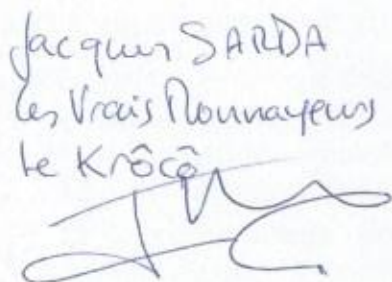 Jacques SARDA
les Vrais Monnayeurs
le Krôcô